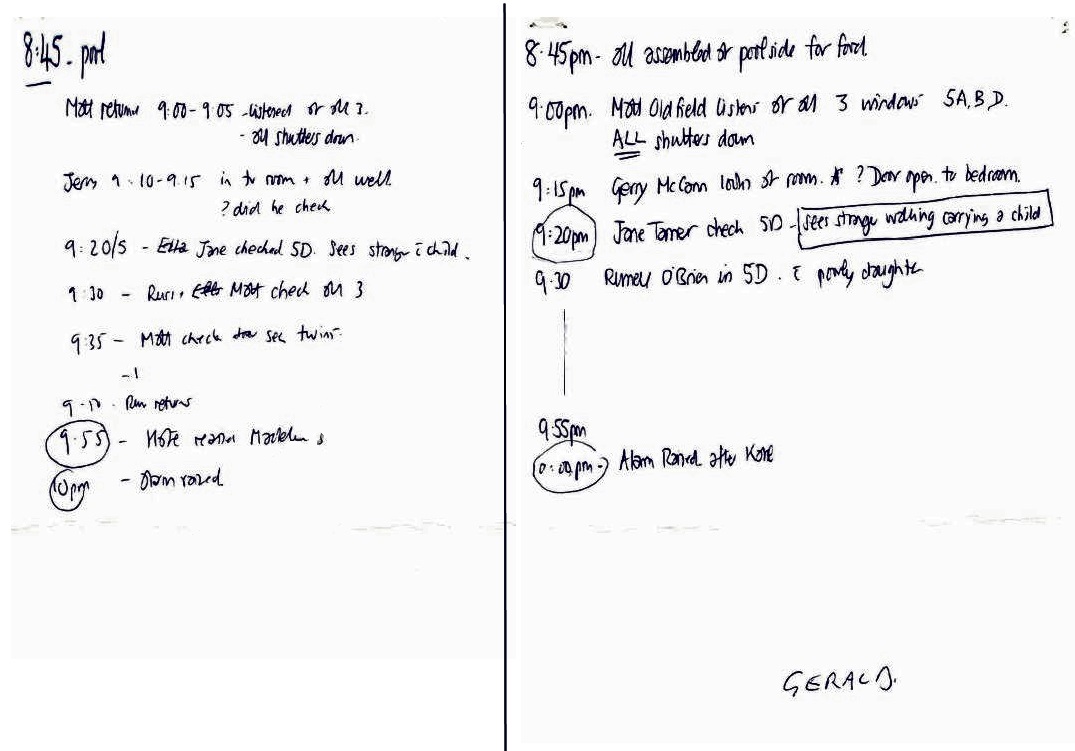 8:45. pool
Matt returns 9:00-9:05 -listened at all 3.
- all shutters down.
Jerry 9:10-9.15 in to room + all well.
? did he check
9:20/5 - Ella Jane checked 5D. Sees stranger c̄ child.
9:30 - Russ + Ella Matt check all 3
9:35 - Matt check see twins.
-1
Russ returns
9.55 - realised Madeleine
10pm - alarm raised
8:45pm- all assembled at poolside for food
9:00pm. Matt Oldfield listens at all 3 windows 5A, B, D.
ALL shutters down
9:15pm Gerry McCann looks at room. ? Door open to bedroom.
9:20pm Jane Tanner check 5D - sees stranger walking carrying a child
9:30 Russell O'Brien in 5D. c̄ poorly daughter
9:55pm
10:00pm - Alarm Raised after Kate
GERALD.